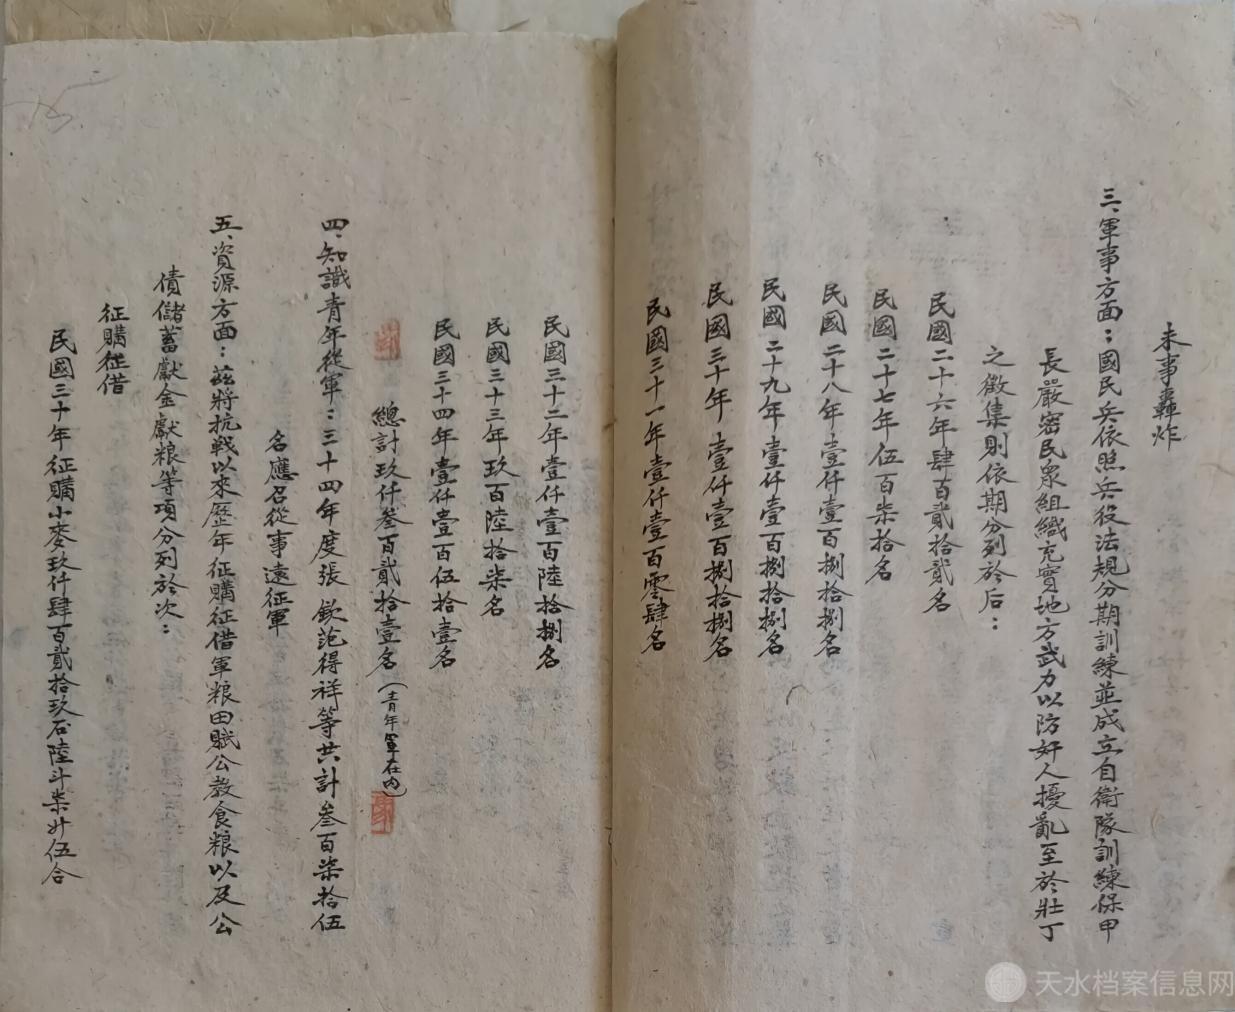 未事轟炸
三、軍事方面：國民兵依照兵役法規分期訓練並成立自衛隊訓練保甲
長嚴密民眾組織充實地方武力以防奸人擾亂至於壯丁
之徵集則依期分列於后：
民國二十六年肆百貳拾貳名
民國二十七年伍百柒拾名
民國二十八年壹仟壹百捌拾捌名
民國二十九年壹仟壹百捌拾捌名
民國三十年壹仟壹百捌拾捌名
民國三十一年壹仟壹百零肆名
民國三十二年壹仟壹百陸拾捌名
民國三十三年玖百陸拾柒名
民國三十四年壹仟壹百伍拾壹名
總計玖仟叁百貳拾壹名（青年軍在內）
四、知識青年從軍：三十四年度張欽 得祥等共計叁百柒拾伍
名應召從事遠征軍
五、資源方面：茲將抗戰以來歷年征購征借軍粮田賦公教食粮以及公
債儲蓄獻金獻粮等項分列於次：
征購征借
民國三十年征購小麥玖仟肆百貳拾玖石陸斗柒升伍合
天水档案信息网